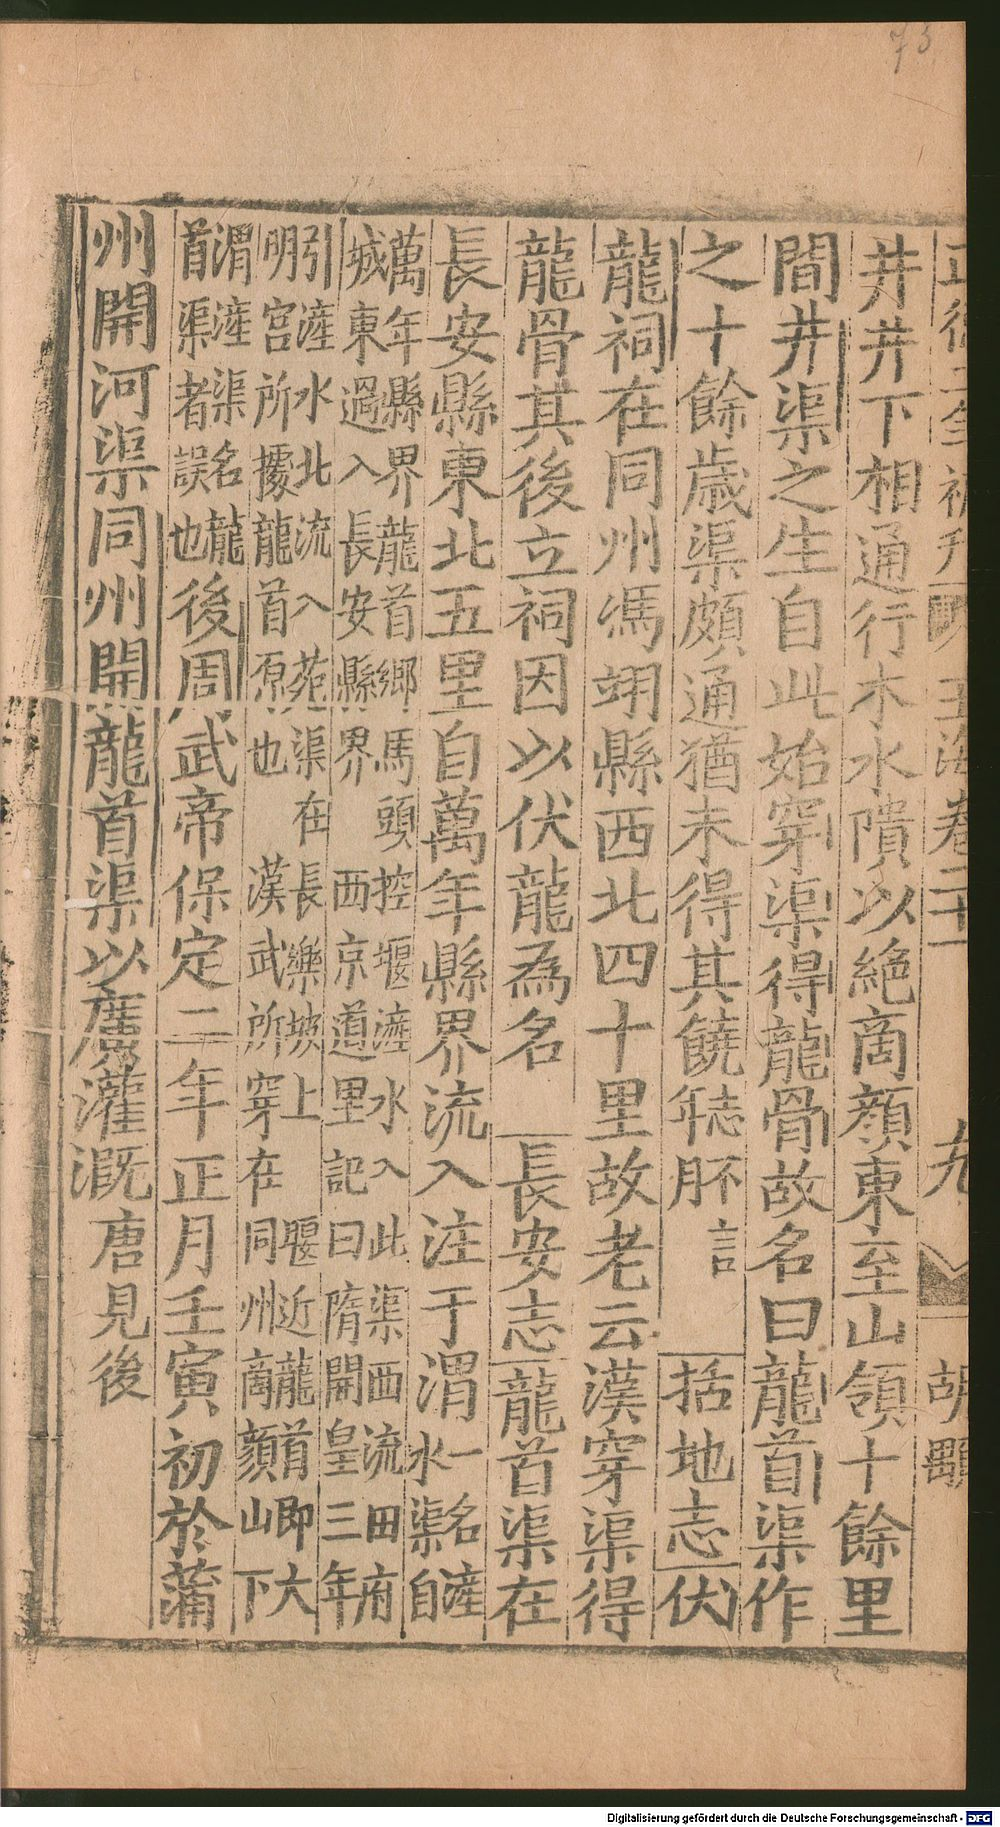 73
正德二年補刊 玉海卷二十一 九 胡
井井下相通行木水隤以絶商顏東至山領十餘里
間井渠之生自此始穿渠得龍骨故名曰龍首渠作
之十餘歲渠頗通猶未得其饒志不言年月 括地志伏
龍祠在同州馮翊縣西北四十里故老云漢穿渠得
龍骨其後立祠因以伏龍為名 長安志龍首渠在
長安縣東北五里自萬年縣界流入注于渭一名滻水渠自
萬年縣界龍首鄉馬頭控堰滻水入此渠西流田府
城東過入長安縣界 西京道里記曰隋開皇三年
引滻水北流入苑渠在長樂坡上堰近龍首即大
明宮所據龍首原也 漢武所穿在同州商顏山下
渭滻渠名龍首渠者誤也後周武帝保定二年正月壬寅初於蒲
州開河渠同州開龍首渠以廣灌溉唐見後
Digitalisierung gefördert durch die Deutsche Forschungsgemeinschaft - DFG